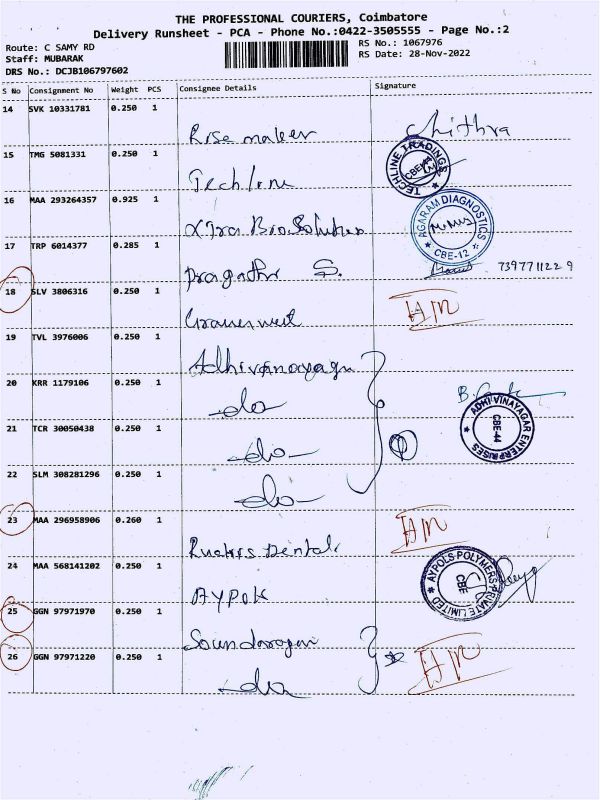 THE PROFESSIONAL COURIERS, Coimbatore
Delivery Runsheet - PCA - Phone No.:0422-3505555 - Page No.:2
Route: C SAMY RD
RS No.: 1067976
Staff: MUBARAK
RS Date: 28-Nov-2022
DRS No.: DCJB106797602
S No Consignment No Weight PCS Consignee Details Signature
14 SVK 10331781 0.250 1
Rose maker Chithra
15 TMG 5081331 0.250 1
Techline TECHLINE TRADINGS CBE-44
16 MAA 293264357 0.925 1
Xtra Bio Solution AGARAM DIAGNOSTICS CBE-12
17 TRP 6014377 0.285 1
Pragathi S. 7397711229
18 SLV 3806316 0.250 1
HM
19 TVL 3976006 0.250 1
Adhivinayaga
20 KRR 1179106 0.250 1
do ADHI VINAYAGAR ENTERPRISES CBE-44
21 TCR 30050438 0.250 1
do
22 SLM 308281296 0.250 1
do
23 MAA 296958906 0.260 1
Dental HM
24 MAA 568141202 0.250 1
Aypols AYPOLS POLYMERS PRIVATE LIMITED CBE
25 GGN 97971970 0.250 1
26 GGN 97971220 0.250 1
do HM